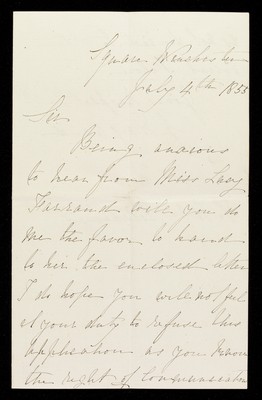 Square Winchester
July 4th 1855
Sir
Being anxious
to hear from Miss Lucy
Farrand will you do
me the favor to hand
to her the enclosed letter
I do hope you will not feel
it your duty to refuse this
application as you know
the right of communication